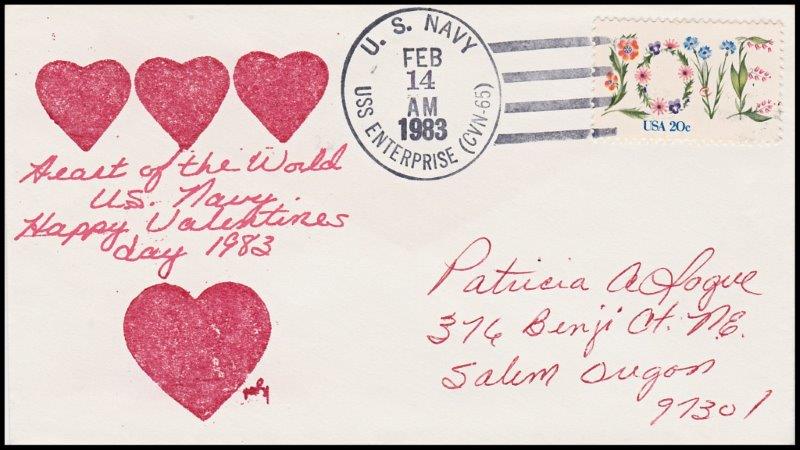 U. S. NAVY
FEB
14
AM
1983
USS ENTERPRISE (CVN-65)
LOVE
USA 20c
Heart of the World
U.S. Navy.
Happy Valentines
day 1983
Patricia A Logue
376 Benji Ct. N.E.
Salem Oregon
97301